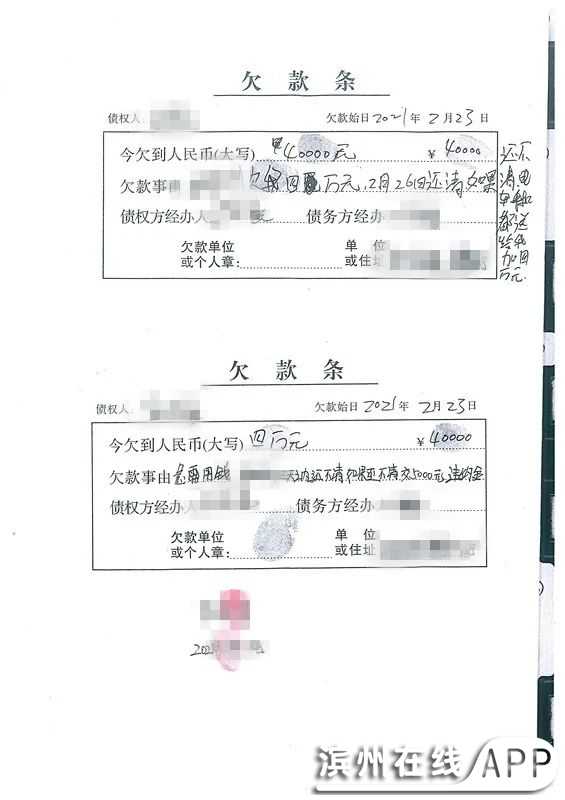 欠款条
债权人 欠款始日2021年2月23日
今欠到人民币(大写) 40000元 ¥40000
欠款事由 万元,2月26日还清如果
还不
清电
车和
都送
给我
加四
万元.
债权方经办人 债务方经办
欠款单位 单位
或个人章: 或住址
欠款条
债权人 欠款始日2021年2月23日
今欠到人民币(大写)四万元 ¥40000
欠款事由急需用钱 天内还不清如果还不清交5000元违约金
债权方经办 债务方经办
欠款单位 单位
或个人章: 或住址
滨州在线APP